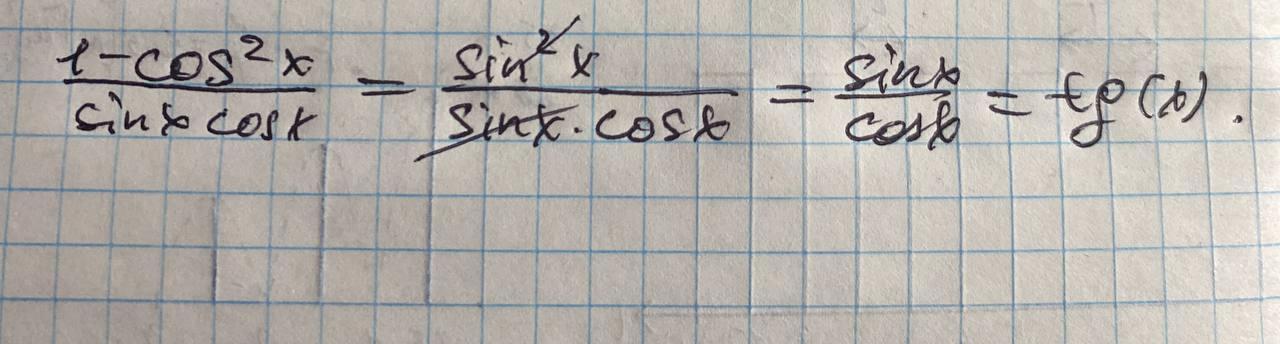 \frac{1-\cos^2 x}{\sin x \cos x} = \frac{\sin^2 x}{\sin x \cdot \cos x} = \frac{\sin x}{\cos x} = tg(x).